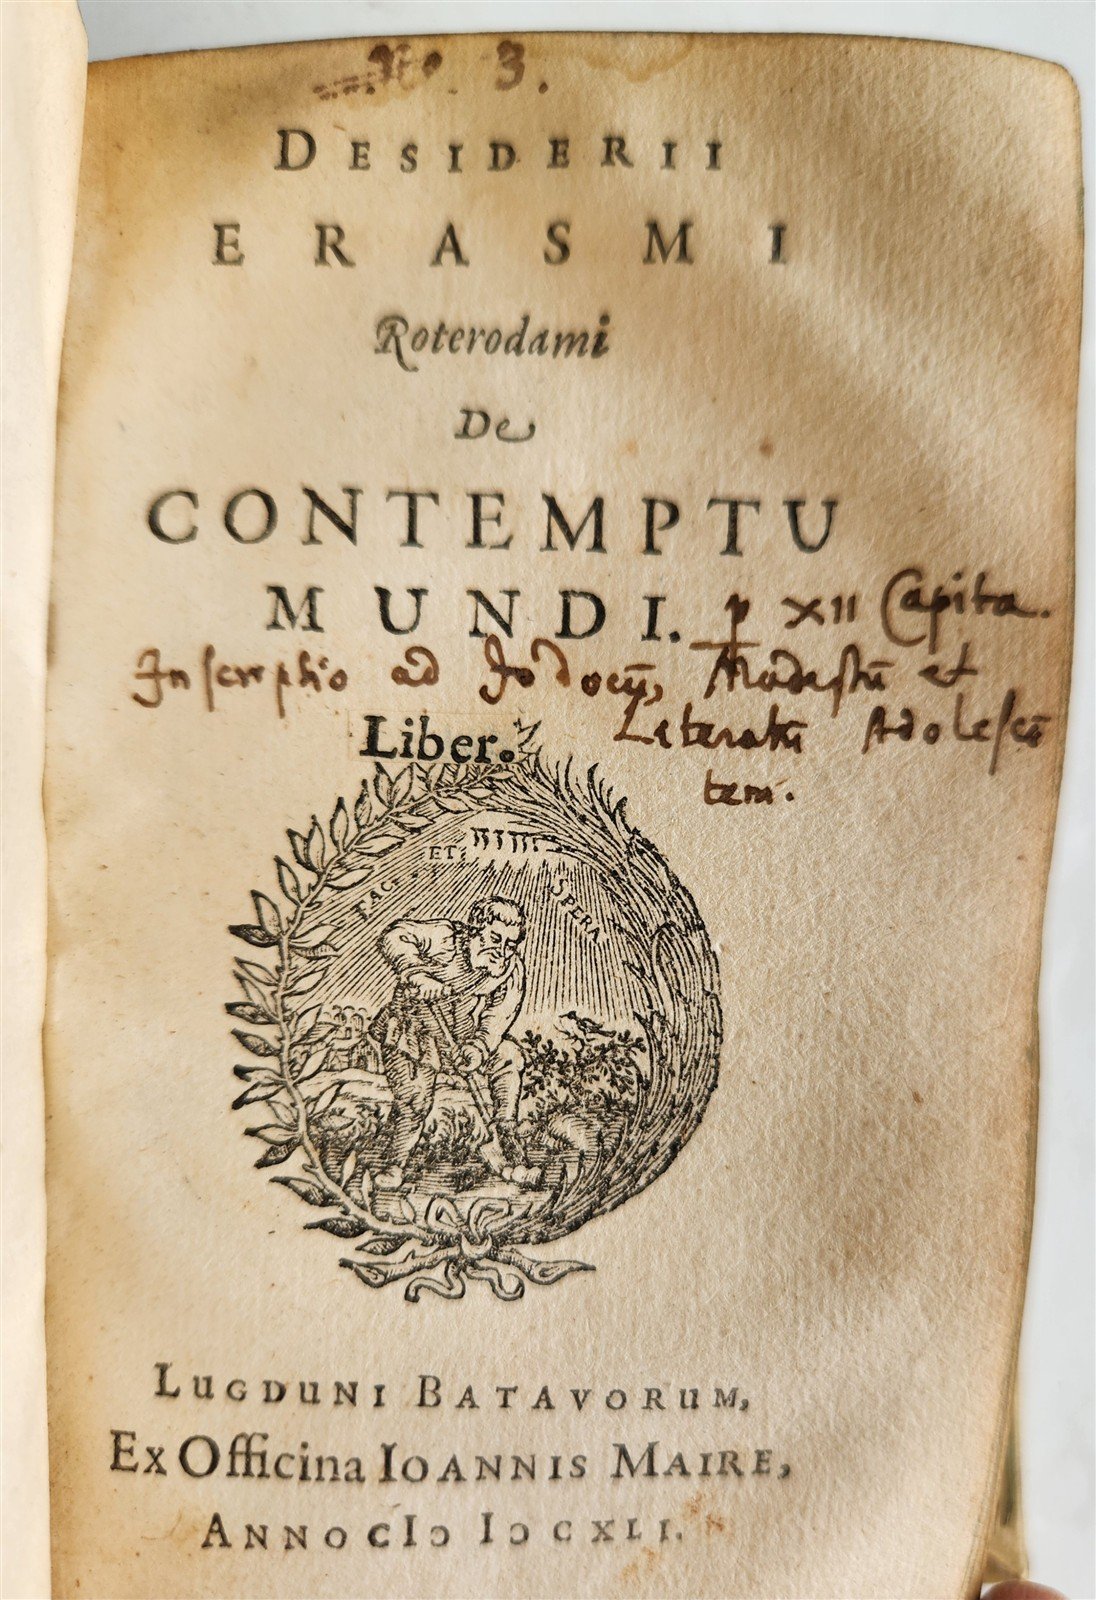 No. 3.
DESIDERII
ERASMI
Roterodami
De
CONTEMPTU
MUNDI. p XII Capita.
Inscriptio ad Jodocū, Modestū et
Literatū Adolescē
tem.
Liber.
FAC ET SPERA
LUGDUNI BATAVORUM,
Ex Officina IOANNIS MAIRE,
ANNO CIↃ IↃ CXLI.